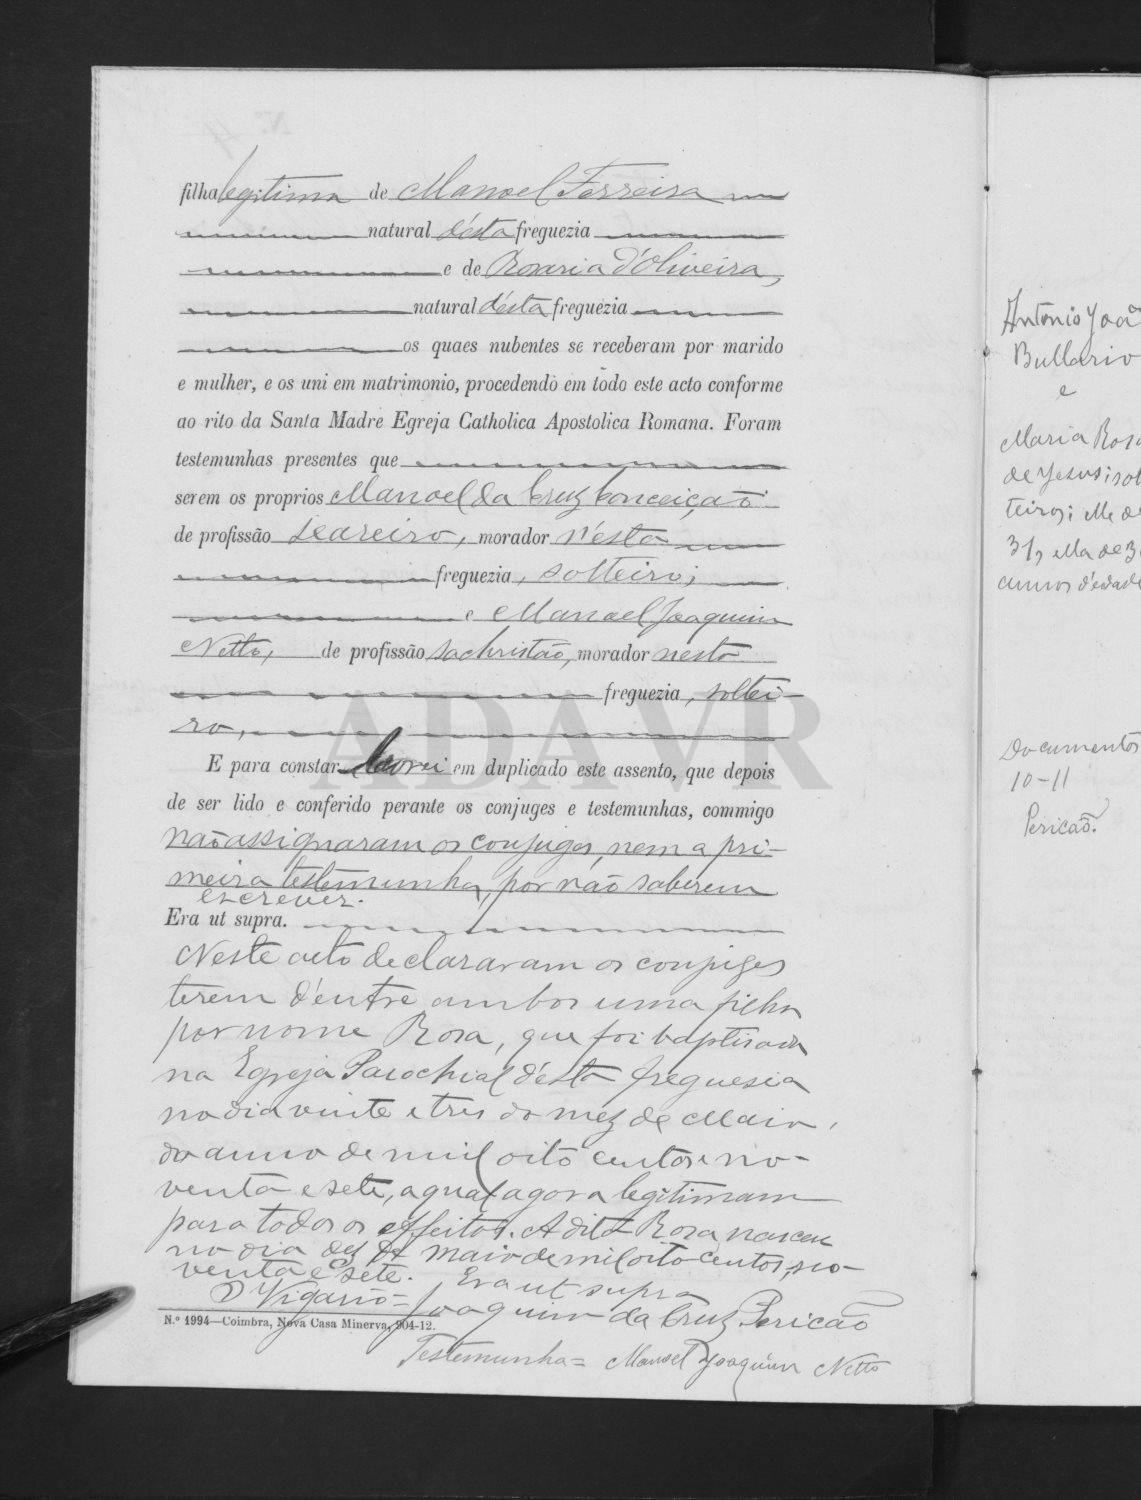 filha legitima de Manoel Ferreira
natural d'esta freguezia
e de Rosaria d'Oliveira,
natural d'esta freguezia
os quaes nubentes se receberam por marido
e mulher, e os uni em matrimonio, procedendo em todo este acto conforme
ao rito da Santa Madre Egreja Catholica Apostolica Romana. Foram
testemunhas presentes que
serem os proprios Manoel da Cruz Conceição
de profissão seareiro, morador n'esta
freguezia, solteiro;
e Manoel Joaquim
Netto, de profissão sachristão, morador nesta
freguezia, soltei-
ro,
ADAVR
E para constar lavrei em duplicado este assento, que depois
de ser lido e conferido perante os conjuges e testemunhas, commigo
não assignaram os conjuges, nem a pri-
meira testemunha, por não saberem
escrever.
Era ut supra.
Neste acto declararam os conjuges
terem d'entre ambos uma filha
por nome Rosa, que foi baptisada
na Egreja Parochial d'esta freguesia
no dia vinte e tres do mez de Maio,
do anno de mil oito centos e no-
venta e sete, a qual agora legitimam
para todos os effeitos. A dita Rosa nasceu
no dia dez de maio de mil oito centos, no-
venta e sete. Era ut supra
O Vigario = Joaquim da Cruz Pericão
N.º 1994—Coimbra, Nova Casa Minerva, 904-12.
Testemunha = Manoel Joaquim Netto
Antonio Joã
Bullario
e
Maria Rosa
de Jesus; sol
teiros; elle de
31, ella de 3
annos d'edade
Documentos
10-11
Pericão.